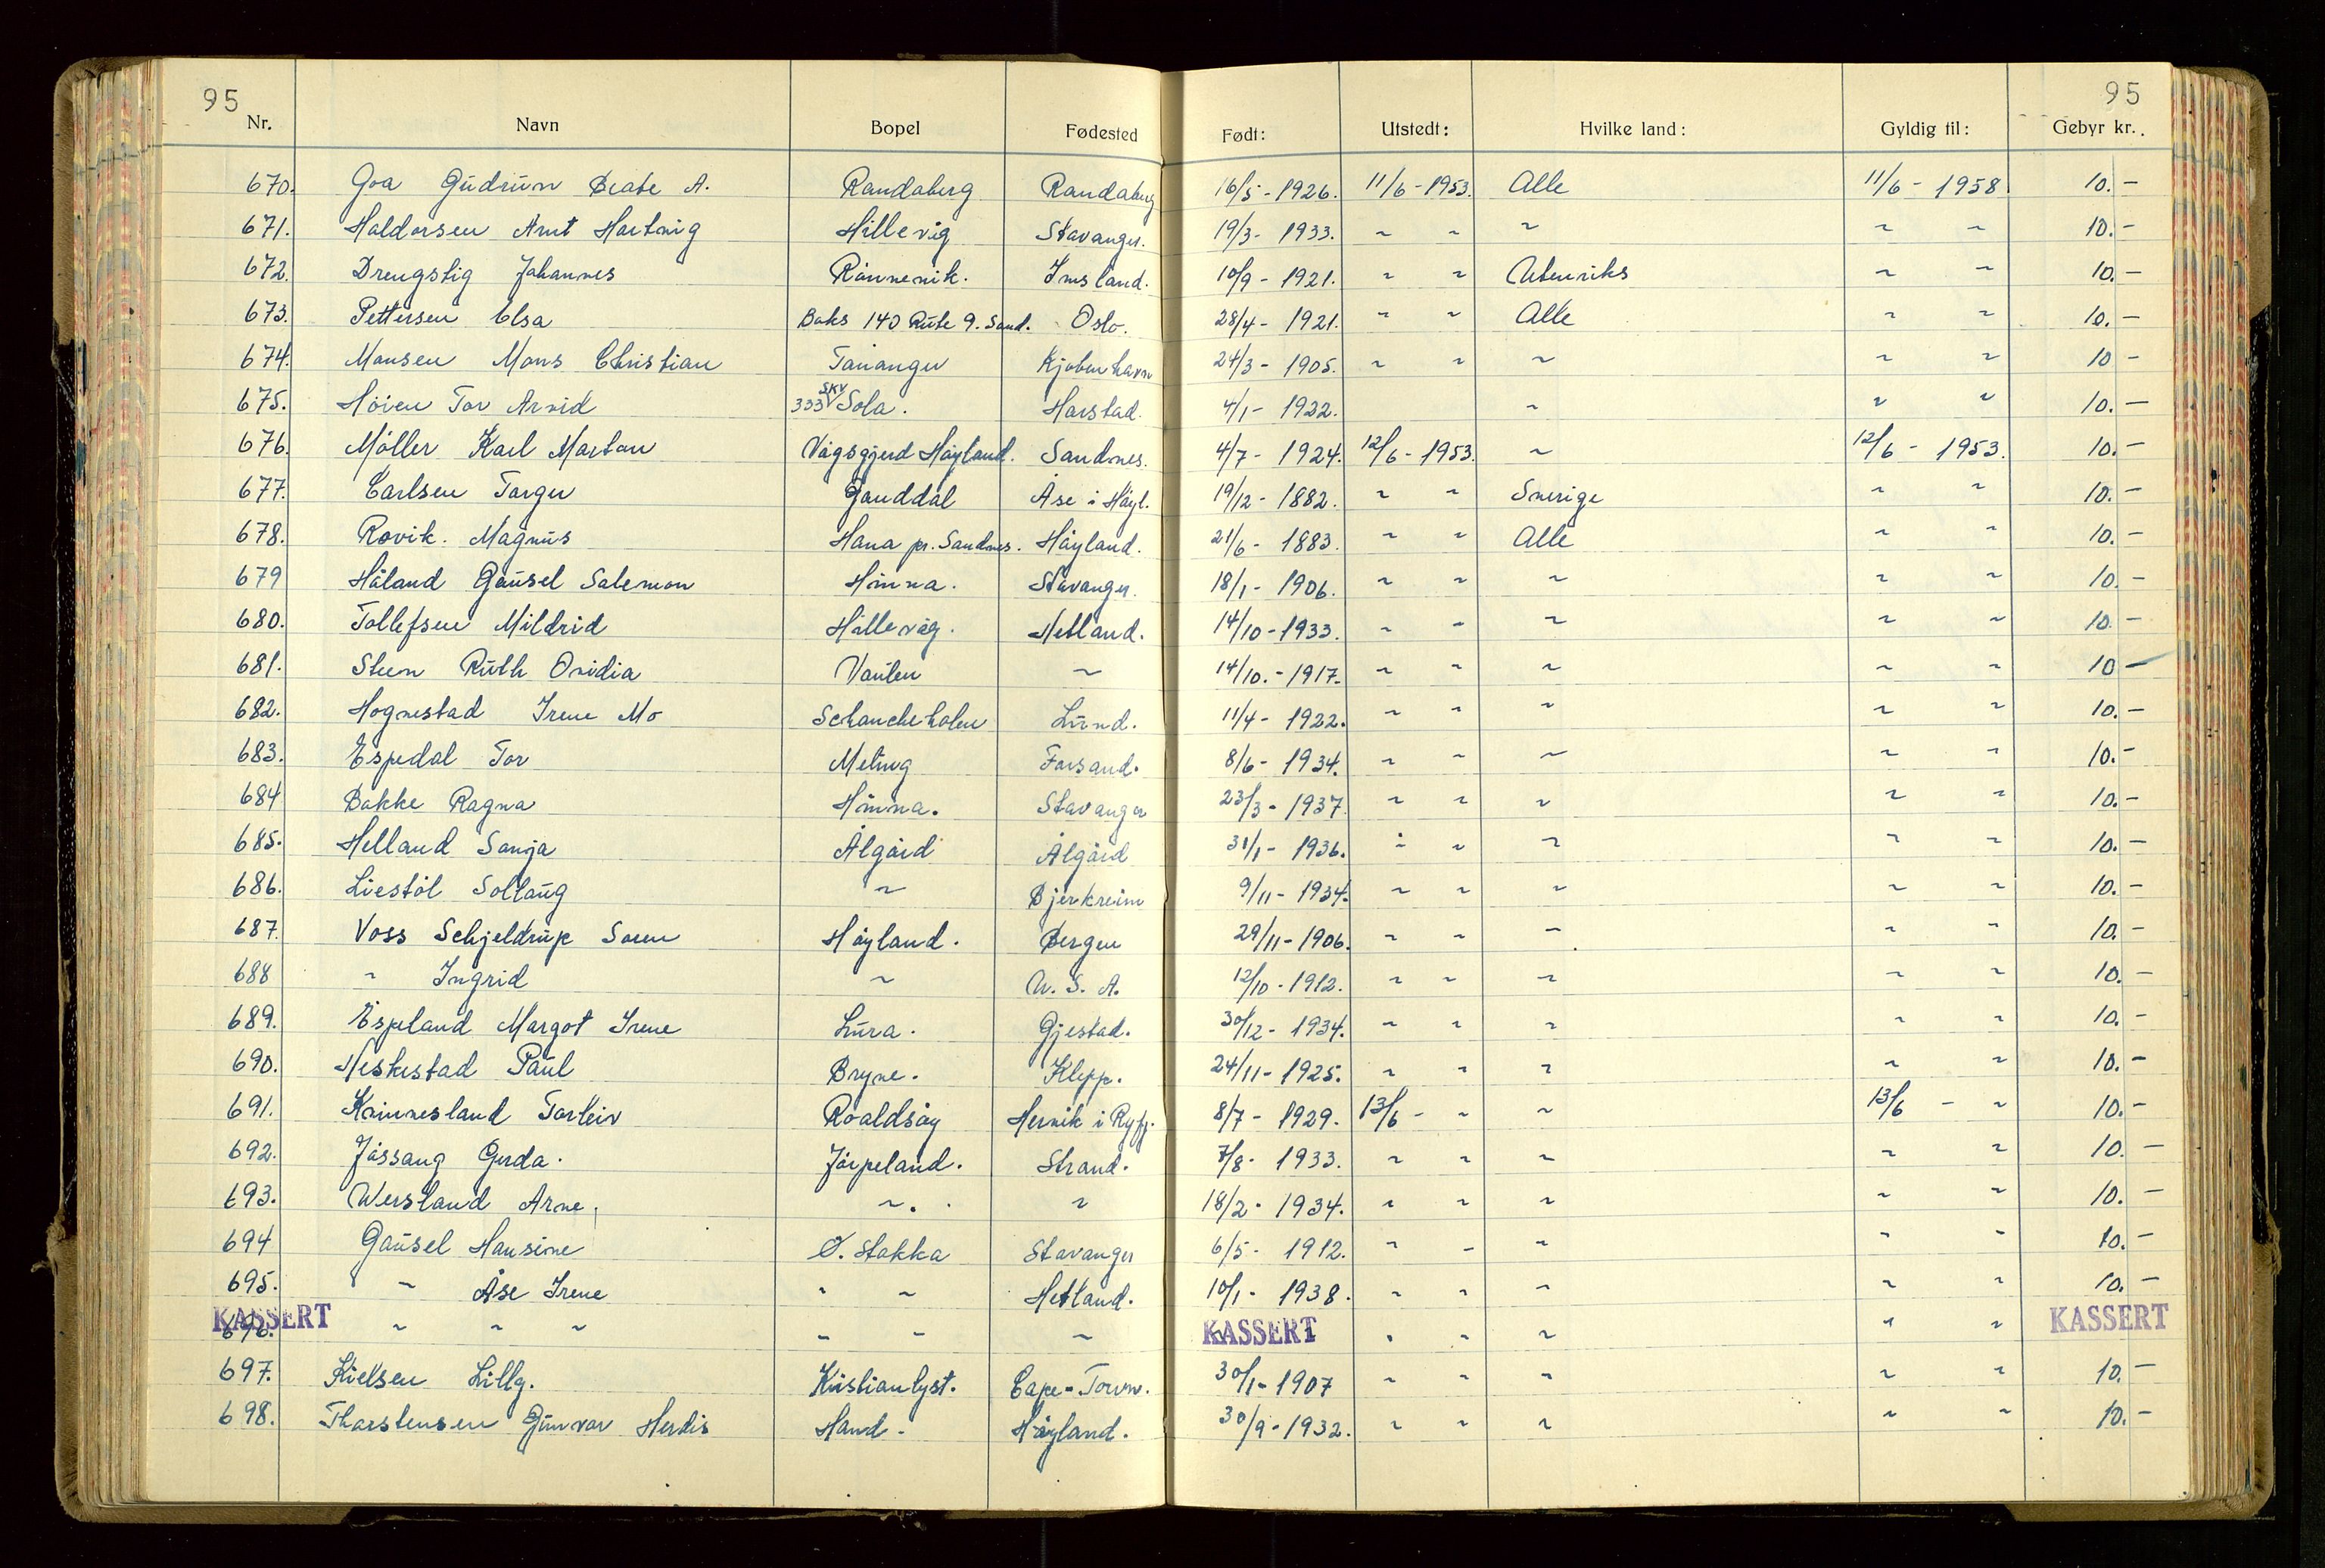 95 95
Nr. Navn Bopel Fødested Født: Utstedt: Hvilke land: Gyldig til: Gebyr kr.
670. Goa Gudrun Beate A. Randaberg Randaberg 16/5-1926. 11/6-1953. Alle 11/6-1958 10.-
671. Haldorsen Arnt Hartvig Hillevåg Stavanger. 19/3-1933. " " " " " 10.-
672. Drengstig Johannes Rånnevik. Imsland. 10/9-1921. " " Utenriks " " 10.-
673. Pettersen Elsa Boks 140 Rute 9. Sand. Oslo. 28/4-1921. " " Alle " " 10.-
674. Monsen Mons Christian Tananger Kjøbenhavn 24/3-1905. " " " " " 10-
675. Höien Tor Arvid 333 SKV Sola. Harstad. 4/1-1922. " " " 10.-
676. Möller Karl Marton Vågsgjerd Høyland. Sandnes. 4/7-1924. 12/6-1953. " 12/6-1953. 10.-
677. Carlsen Torger Ganddal Åse i Høyl. 19/12-1882. " " Sverige " " 10.-
678. Rovik. Magnus Hana pr. Sandnes. Høyland. 21/6-1883. " " Alle " " 10.-
679 Håland Gausel Salemon Hinna. Stavanger. 18/1-1906. " " " " " 10.-
680. Tollefsen Mildrid Hillevåg. Hetland. 14/10-1933. " " " " " 10.-
681. Steen Ruth Ovidia Vaulen " 14/10.-1917. " " " " " 10-
682. Hognestad Irene Mo Schancheholen Lund. 11/4-1922. " " " " " 10.-
683. Espedal Tor Meling Forsand. 8/6-1934. " " " " " 10.-
684 Bakke Ragna Hinna. Stavanger 23/3-1937. " " " " " 10.-
685. Helland Sonja Ålgård Ålgård 31/1-1936. " " " " " 10.-
686. Liestöl Sollaug " Bjerkreim 9/11-1934. " " " " " 10.-
687. Voss Schjeldrup Sören Høyland. Bergen 29/11-1906. " " " " " 10.-
688 " Ingrid " U. S. A. 12/10-1912. " " " " " 10.-
689. Espeland Margot Irene Lura. Gjestad. 30/12-1934. " " " " " 10.-
690. Heskestad Paul Bryne. Klepp. 24/11-1925. " " " " " 10.-
691. Kvinnesland Torleiv Roaldsøy Hervik i Ryfy. 8/7-1929. 13/6- " " 13/6 - " 10.-
692. Jössang Gerda. Jörpeland. Strand. 7/8-1933. " " " " " 10.-
693. Wersland Arne. ". " 18/2-1934. " " " " " 10.-
694 Gausel Hansine Ø. Stokka Stavanger 6/5-1912. " " " " " 10.-
695. " Åse Irene " " Hetland. 10/1-1938. " " " " " 10.-
KASSERT 696. " " " " " " KASSERT " " " " " KASSERT
697. Kielsen Lilly. Kristianlyst. Cape-Town. 30/1-1907 " " " " " 10.-
698. Thorstensen Gunvor Herdis Høyland. 30/9-1932. " " " " " 10.-